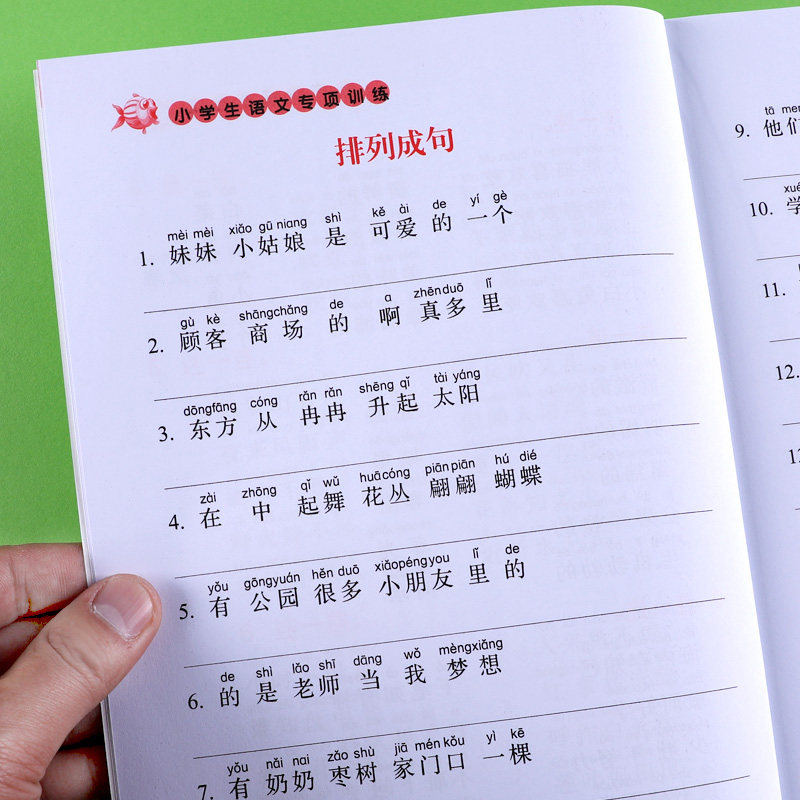 小学生语文专项训练
排列成句
mèi mèi xiǎo gū niang shì kě ài de yí gè
1. 妹妹 小姑娘 是 可爱 的 一个
gù kè shāngchǎng de a zhēnduō lǐ
2. 顾客 商场 的 啊 真多 里
dōngfāng cóng rǎn rǎn shēng qǐ tài yáng
3. 东方 从 冉冉 升起 太阳
zài zhōng qǐ wǔ huācóng piānpiān hú dié
4. 在 中 起舞 花丛 翩翩 蝴蝶
yǒu gōngyuán hěn duō xiǎopéngyou lǐ de
5. 有 公园 很多 小朋友 里 的
de shì lǎo shī dāng wǒ mèngxiǎng
6. 的 是 老师 当 我 梦想
yǒu nǎi nai zǎo shù jiā mén kǒu yì kē
7. 有 奶奶 枣树 家门口 一棵
tā men
9. 他们
10. 学
11.
12.